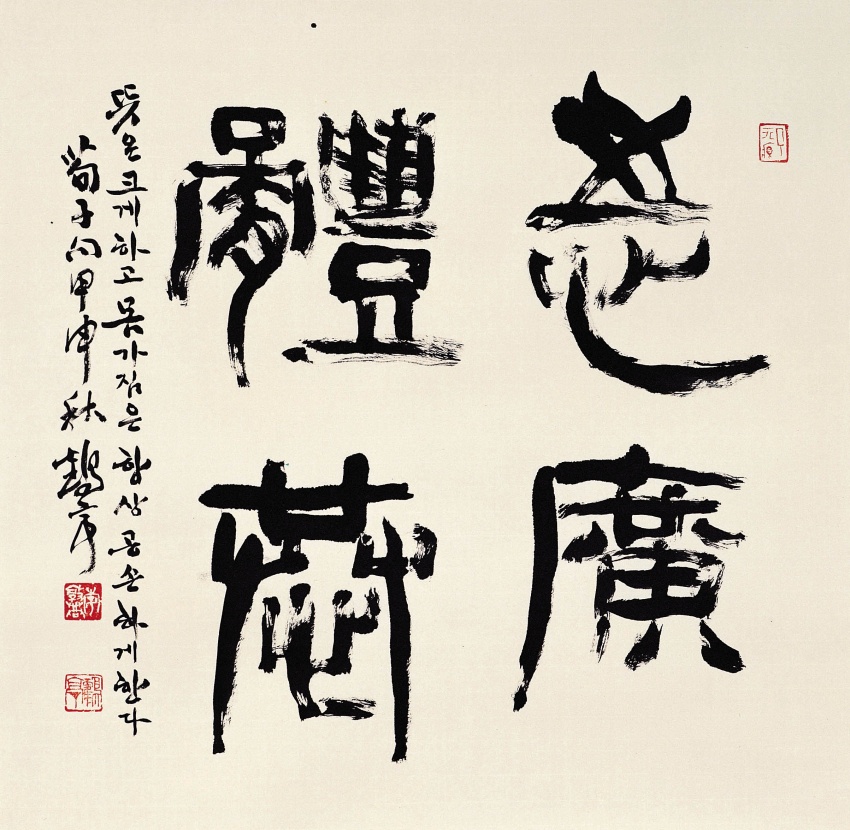 志廣
體恭
뜻은크게하고몸가짐은항상공손하게한다
荀子句甲申秋鶴亭